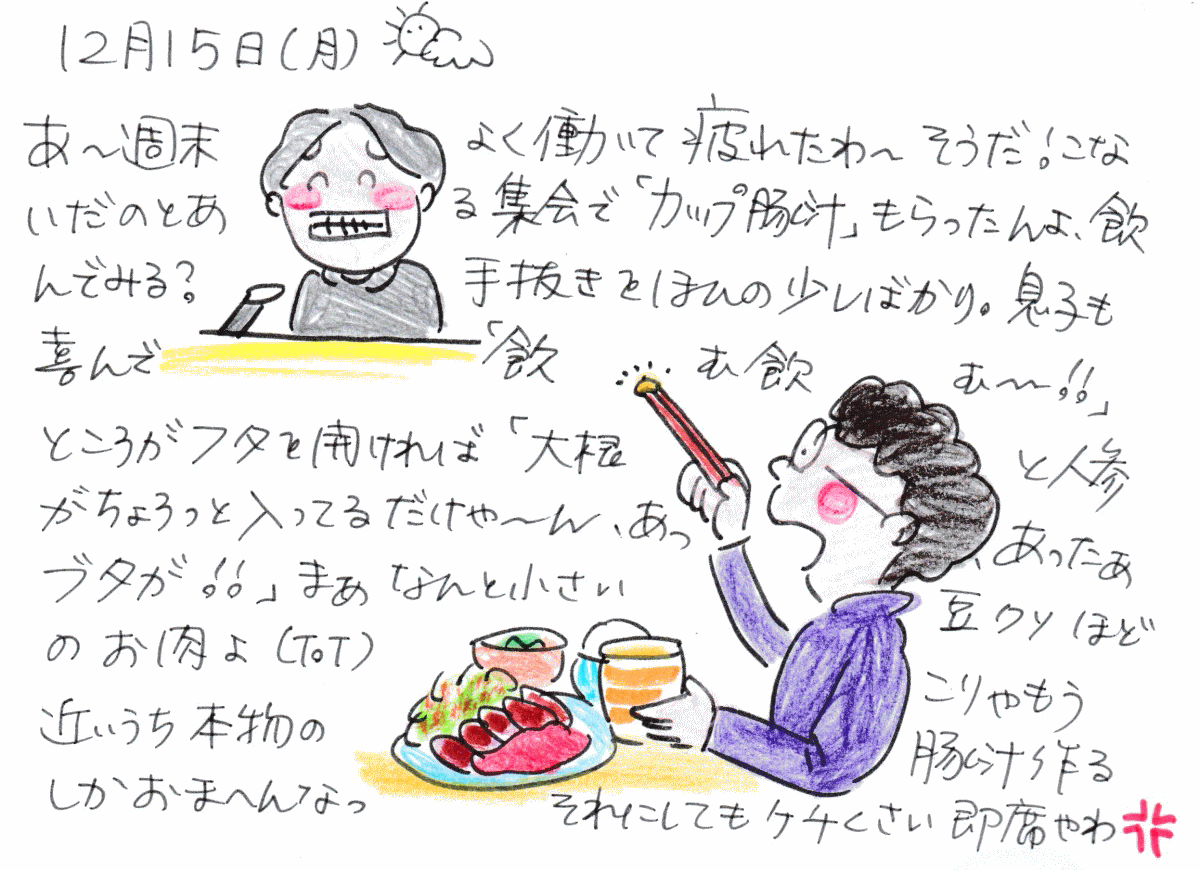 12月15日(月)
あ～週末 よく働いて疲れたわ～そうだ!こな
いだのとあ る集会で「カップ豚汁」もらったんよ、飲
んでみる? 手抜きをほんの少しばかり。息子も
喜んで「飲 む飲 む～～!!」
ところがフタを開ければ「大根 と人参
がちょろっと入ってるだけや～ん、あっ、あったぁ
ブタが!!」まぁなんと小さい 豆クソほど
のお肉よ(ToT) こりゃもう
近いうち本物の 豚汁作る
しかおまへんなっ それにしてもケチくさい即席やわ